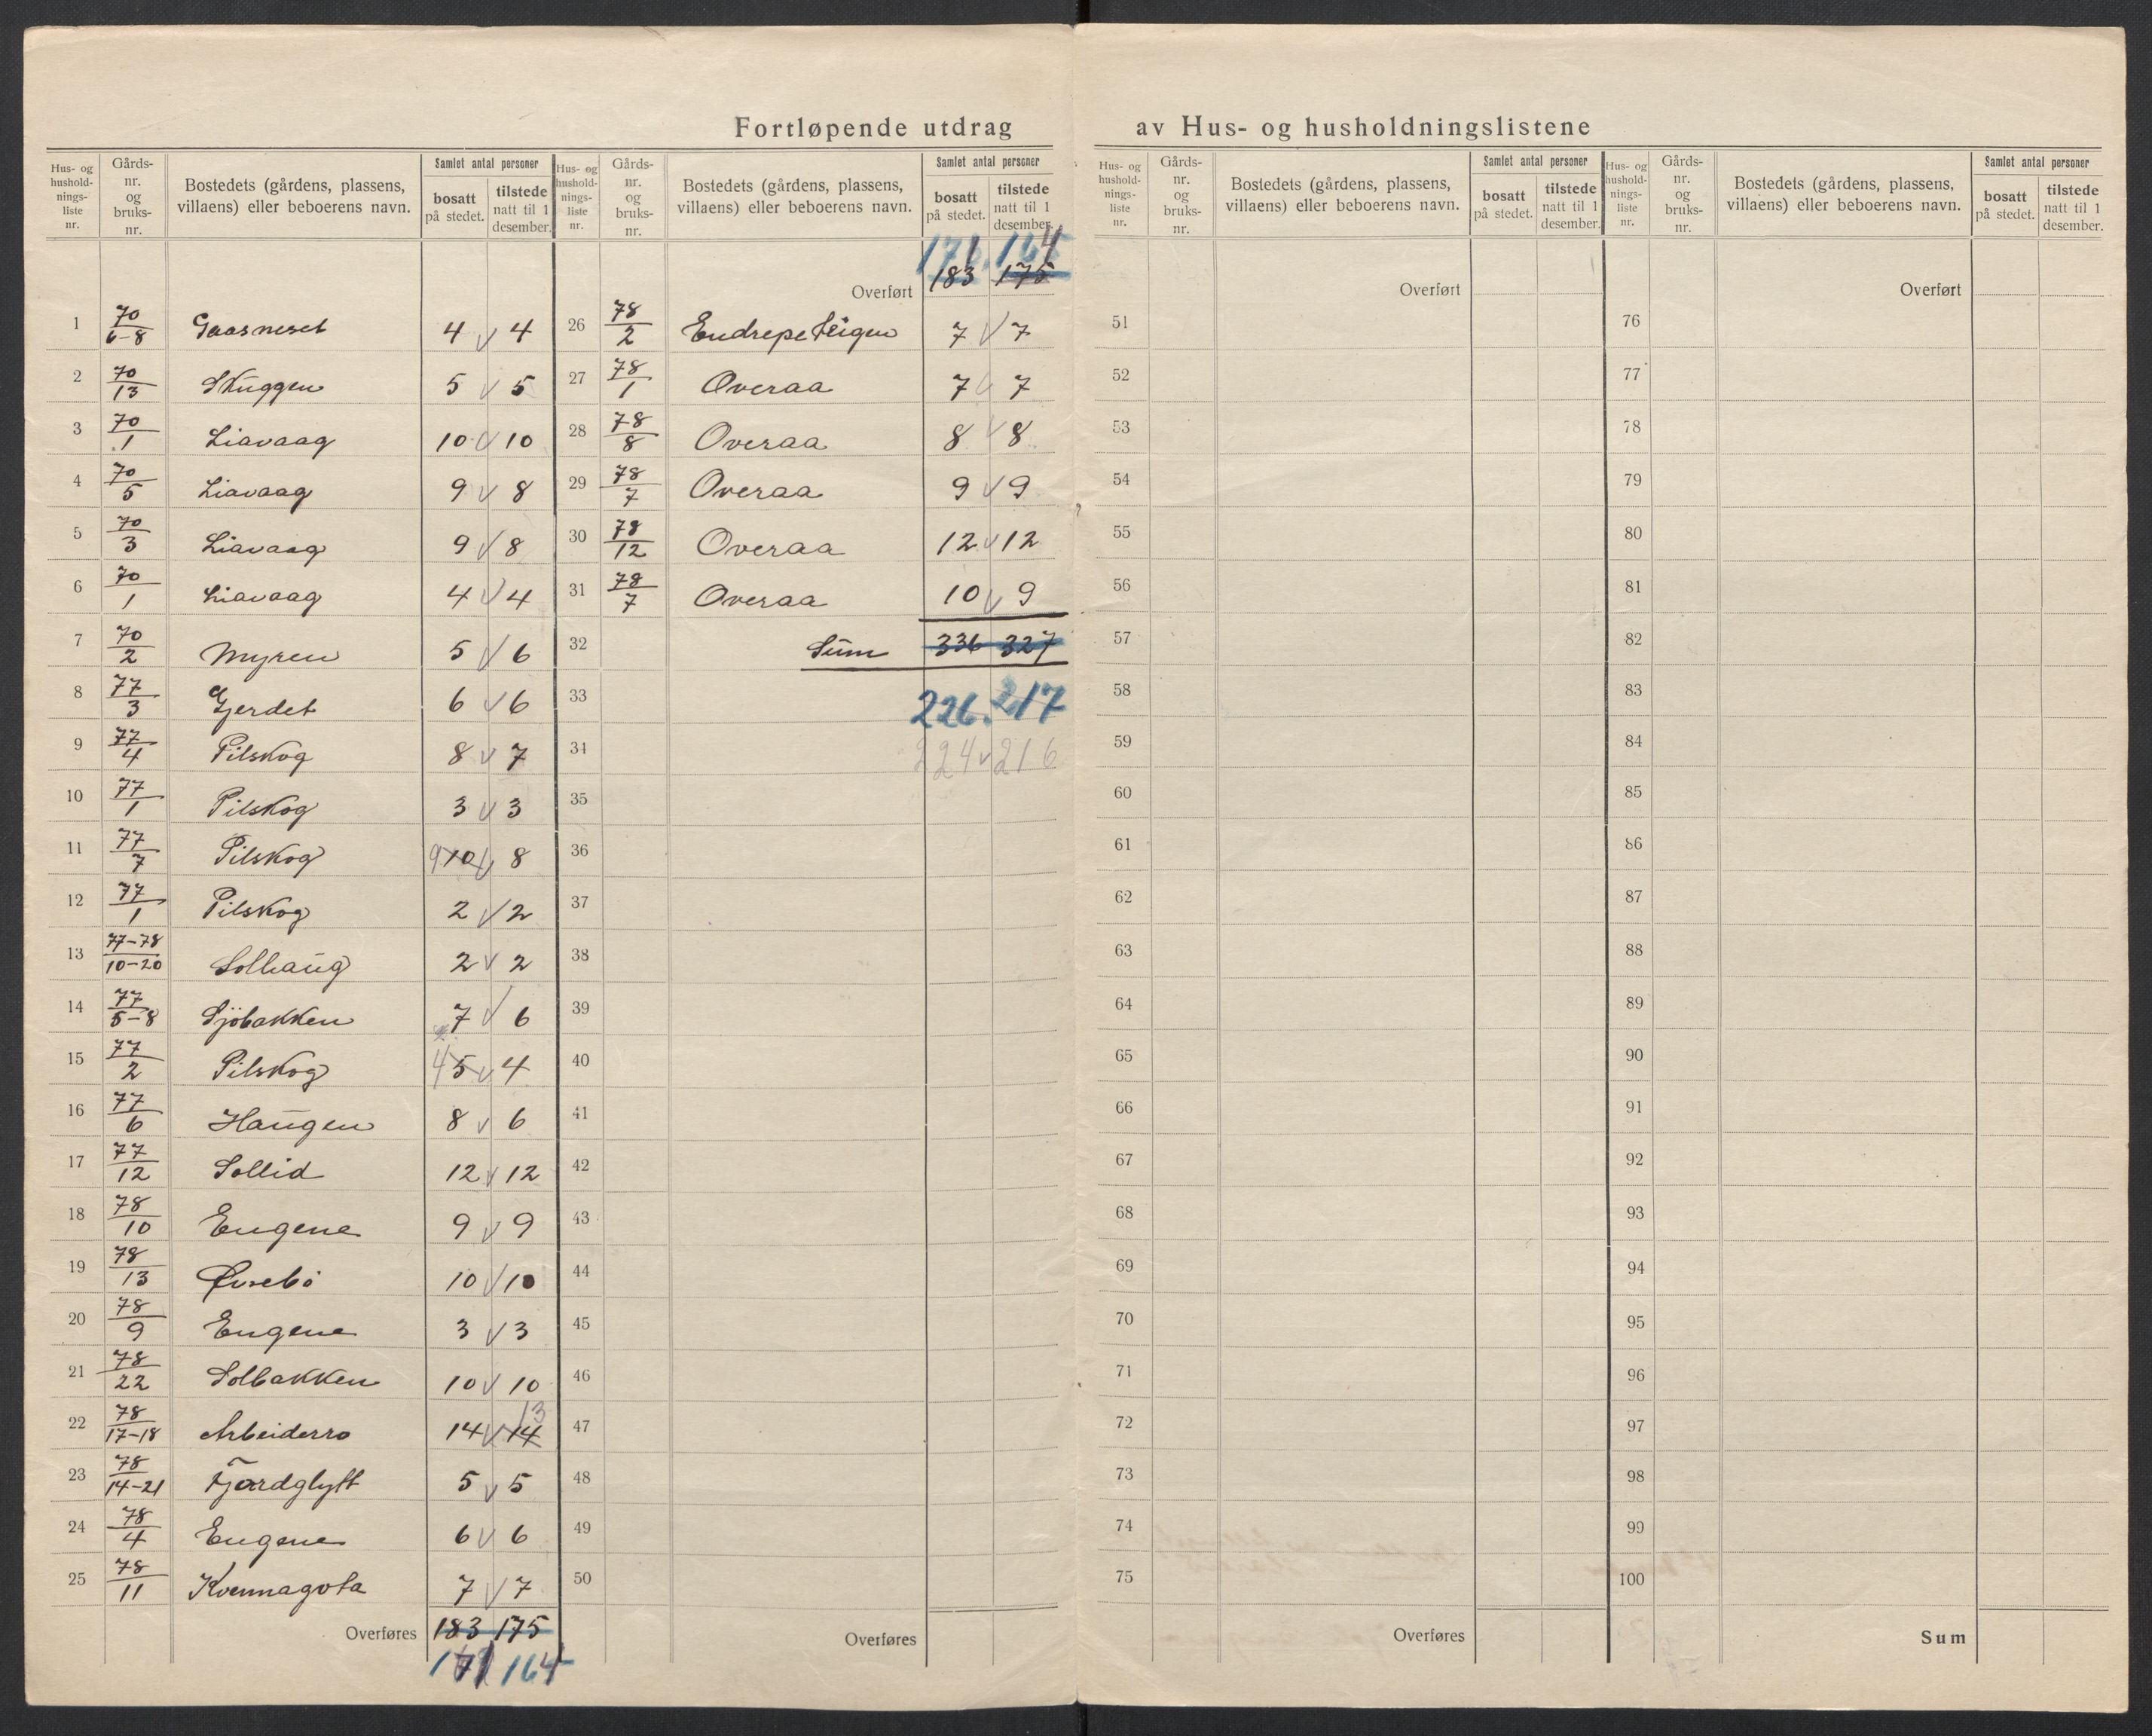 Fortløpende utdrag av Hus- og husholdningslistene
Hus- og hushold- nings- liste nr. | Gårds- nr. og bruks- nr. | Bostedets (gårdens, plassens, villaens) eller beboerens navn. | Samlet antal personer | bosatt på stedet. | tilstede natt til 1 desember.
1 70/6-8 Gaasneset 4 v 4
2 70/13 Skuggen 5 v 5
3 70/1 Liavaag 10 v 10
4 70/5 Liavaag 9 v 8
5 70/3 Liavaag 9 v 8
6 70/1 Liavaag 4 v 4
7 70/2 Myren 5 v 6
8 77/3 Gjerdet 6 v 6
9 77/4 Pilskog 8 v 7
10 77/1 Pilskog 3 v 3
11 77/7 Pilskog 9 10 v 8
12 77/1 Pilskog 2 v 2
13 77-78/10-20 Solhaug 2 v 2
14 77/5-8 Sjöbakken 7 v 6
15 77/2 Pilskog 4 5 v 4
16 77/6 Haugen 8 v 6
17 77/12 Sollid 12 v 12
18 78/10 Eugene 9 v 9
19 78/13 Øvsebö 10 v 10
20 78/9 Engene 3 v 3
21 78/22 Solbakken 10 v 10
22 78/17-18 Arbeiderro 14 v 14 13
23 78/14-21 Fjordglytt 5 v 5
24 78/4 Engene 6 v 6
25 78/11 Kvennagota 7 v 7
Overføres 183 175
171 164
Hus- og hushold- nings- liste nr. | Gårds- nr. og bruks- nr. | Bostedets (gårdens, plassens, villaens) eller beboerens navn. | Samlet antal personer | bosatt på stedet. | tilstede natt til 1 desember.
171. 164
Overført 183 175
26 78/2 Endrepeteigen 7 v 7
27 78/1 Overaa 7 v 7
28 78/8 Overaa 8 v 8
29 78/7 Overaa 9 v 9
30 78/12 Overaa 12 v 12
31 78/7 Overaa 10 v 9
32 Sum 336 327
33 226. 217
34 224 v 216
35
36
37
38
39
40
41
42
43
44
45
46
47
48
49
50
Overføres
Hus- og hushold- nings- liste nr. | Gårds- nr. og bruks- nr. | Bostedets (gårdens, plassens, villaens) eller beboerens navn. | Samlet antal personer | bosatt på stedet. | tilstede natt til 1 desember.
Overført
51
52
53
54
55
56
57
58
59
60
61
62
63
64
65
66
67
68
69
70
71
72
73
74
75
Overføres
Hus- og hushold- nings- liste nr. | Gårds- nr. og bruks- nr. | Bostedets (gårdens, plassens, villaens) eller beboerens navn. | Samlet antal personer | bosatt på stedet. | tilstede natt til 1 desember.
Overført
76
77
78
79
80
81
82
83
84
85
86
87
88
89
90
91
92
93
94
95
96
97
98
99
100
Sum